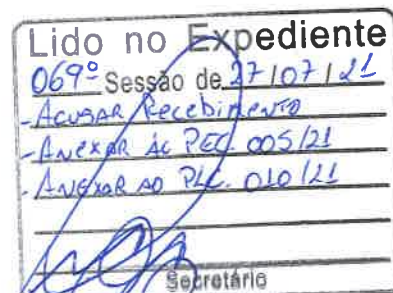 Lido no Expediente
069º Sessão de 27/07/21
- Acusar Recebimento
- Anexar Ac PEC. 005/21
- Anexar ao PLC. 010/21
Secretário